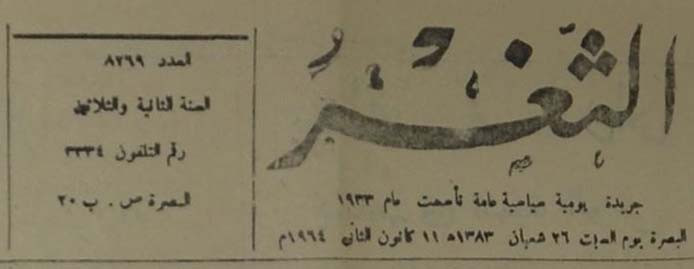 الثغر
جريدة يومية سياسية عامة تأسست عام ١٩٣٣
البصرة يوم السبت ٢٦ شعبان ١٣٨٣ه‍ ١١ كانون الثاني ١٩٦٤م
العدد ٨٢٦٩
السنة الثانية والثلاثين
رقم التلفون ٣٣٣٤
البصرة ص. ب ٢٠